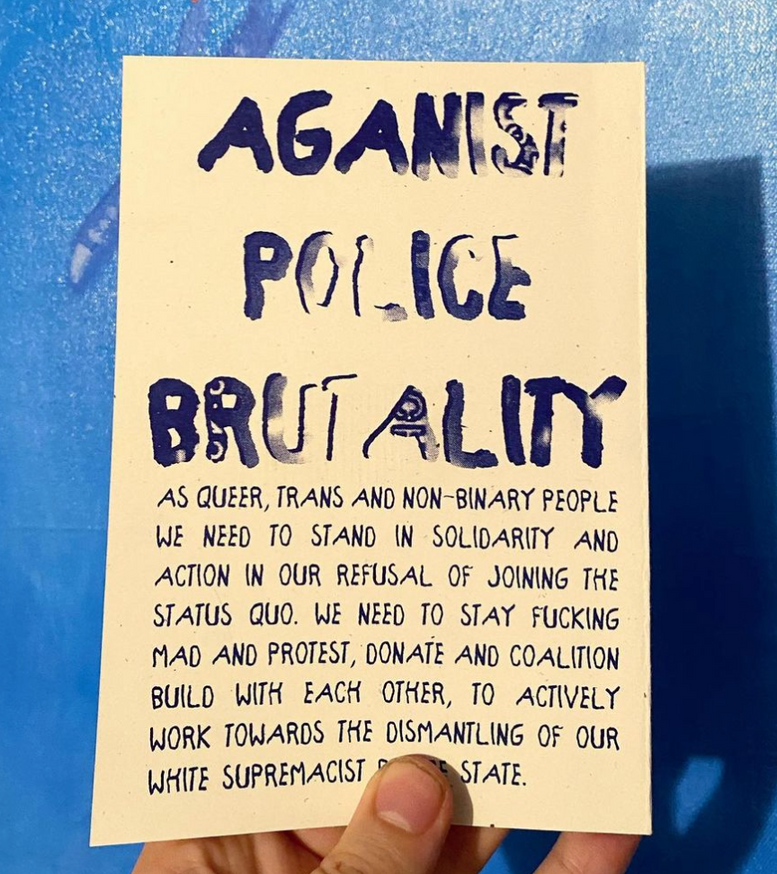 AGANIST
POLICE
BRUTALITY
AS QUEER, TRANS AND NON-BINARY PEOPLE
WE NEED TO STAND IN SOLIDARITY AND
ACTION IN OUR REFUSAL OF JOINING THE
STATUS QUO. WE NEED TO STAY FUCKING
MAD AND PROTEST, DONATE AND COALITION
BUILD WITH EACH OTHER, TO ACTIVELY
WORK TOWARDS THE DISMANTLING OF OUR
WHITE SUPREMACIST STATE.